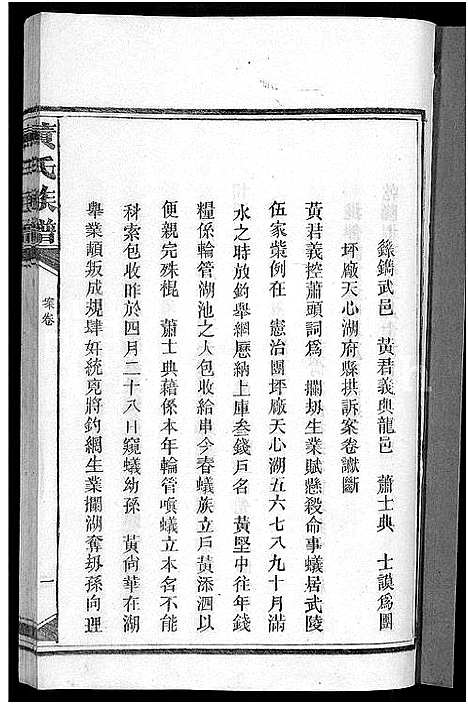 錄鐫武邑 黃君義與龍邑 蕭士典 士謨爲團
坪廠天心湖府縣拱訴案卷讞斷
黃君義控蕭頭詞爲 攔刼生業賦懸殺命事蟻居武陵
伍家柴例在 憲治團坪廠天心湖五六七八九十月滿
水之時放釣舉網歷納上庫叁錢戶名 黃堅中往年錢
糧係輪管湖池之人包收給串今春蟻族立戶黃添泗以
便親完殊棍 蕭士典藉係本年輪管嗔蟻立本名不能
科索包收昨於四月二十八日窺蟻幼孫 黃尙華在湖
舉業頓叛成規肆奸統兇將釣網生業攔湖奪刼孫向理
黃氏族譜
案卷
一